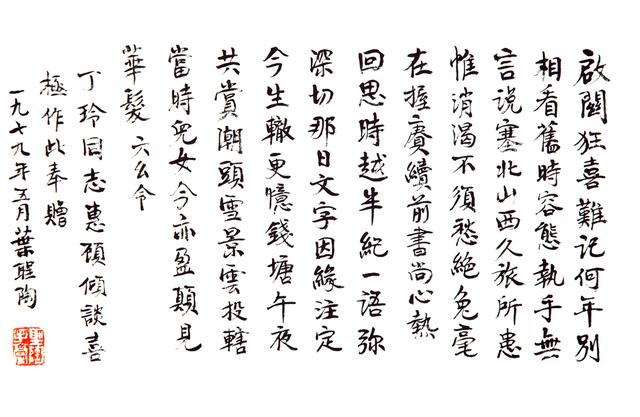 啟關狂喜難記何年別
相看舊時容態執手無
言說塞北山西久旅所患
惟消渴不須愁絕兔毫
在握賡續前書尚心熱
回思時越半紀一語弥
深切那日文字因緣注定
今生轍更憶錢塘午夜
共賞潮頭雪景雲投轄
當時兒女今亦盈顛見
華髮 六么令
丁玲同志惠顧傾談喜
極作此奉贈
一九七九年五月葉聖陶